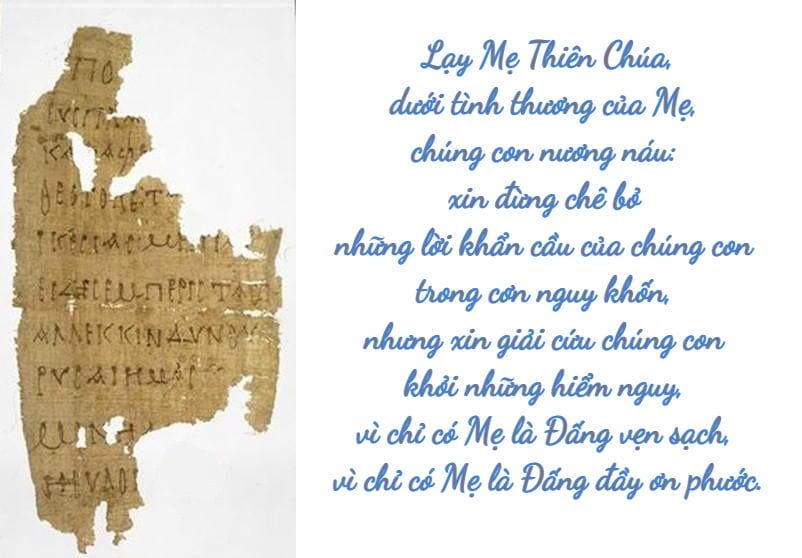 ΠΟ
ΘΕΟΤΟΚΕΤ
ΑΛΛΕΚΚΙΝΔΥΝΟΥ
Lạy Mẹ Thiên Chúa,
dưới tình thương của Mẹ,
chúng con nương náu:
xin đừng chê bỏ
những lời khẩn cầu của chúng con
trong cơn nguy khốn,
nhưng xin giải cứu chúng con
khỏi những hiểm nguy,
vì chỉ có Mẹ là Đấng vẹn sạch,
vì chỉ có Mẹ là Đấng đầy ơn phước.